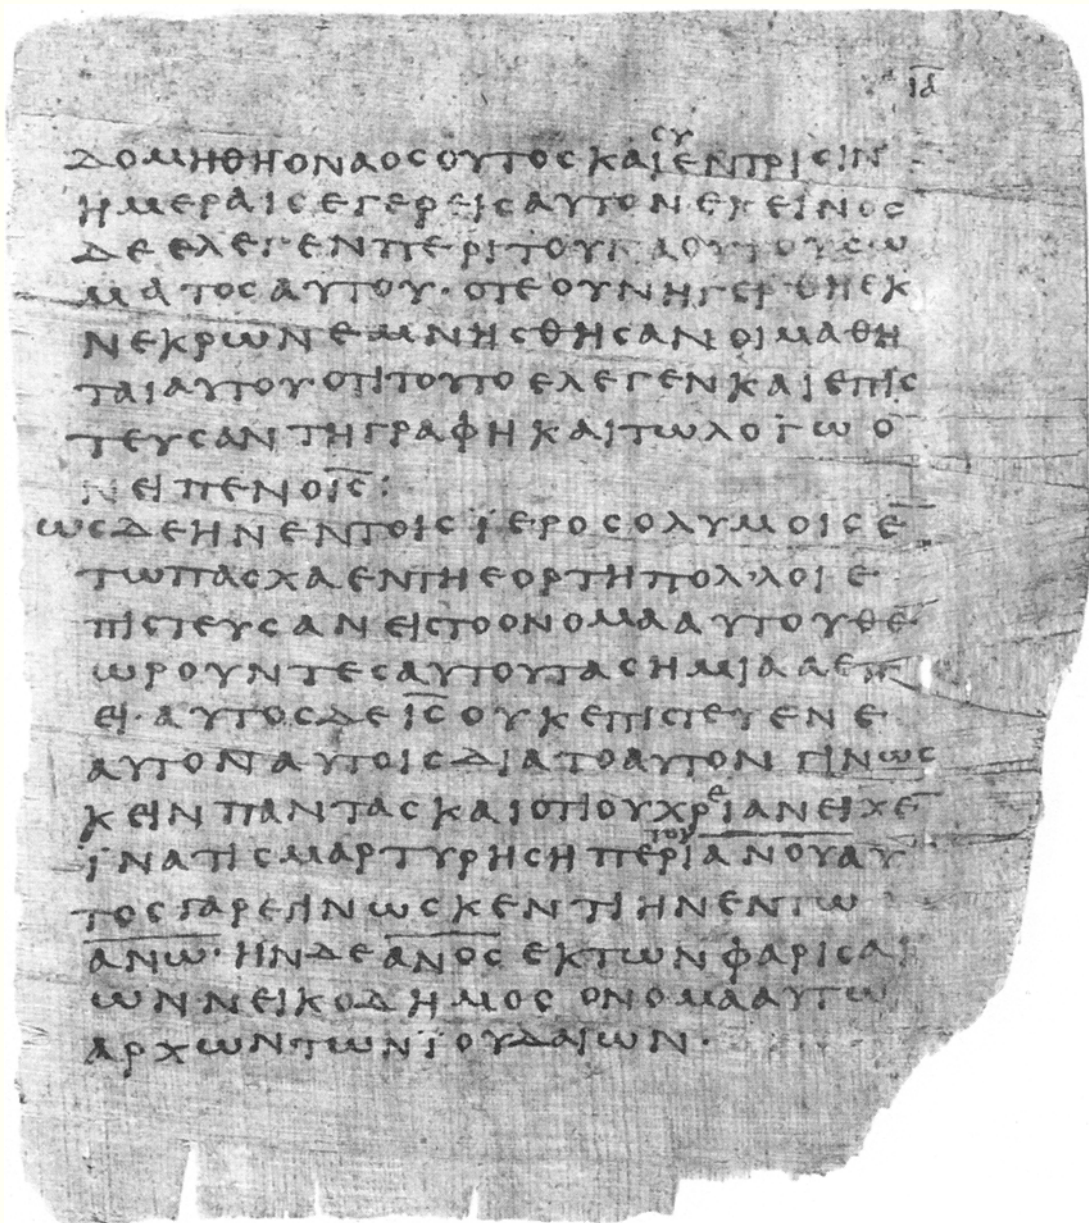 ΙΔ
ΔΟΜΗΘΗΟΝΑΟϹΟΥΤΟϹΚΑΙ`ϹΥ´ΕΝΤΡΙϹΙΝ
ΗΜΕΡΑΙϹΕΓΕΡΕΙϹΑΥΤΟΝΕΚΕΙΝΟϹ
ΔΕΕΛΕΓΕΝΠΕΡΙΤΟΥΝΑΟΥΤΟΥϹΩ
ΜΑΤΟϹΑΥΤΟΥ·ΟΤΕΟΥΝΗΓΕΡΘΗΕΚ
ΝΕΚΡΩΝΕΜΝΗϹΘΗϹΑΝΟΙΜΑΘΗ
ΤΑΙΑΥΤΟΥΟΤΙΤΟΥΤΟΕΛΕΓΕΝΚΑΙΕΠΙϹ
ΤΕΥϹΑΝΤΗΓΡΑΦΗΚΑΙΤΩΛΟΓΩΟ
ΝΕΙΠΕΝΟΙ̅Ϲ̅:
ΩϹΔΕΗΝΕΝΤΟΙϹΪΕΡΟϹΟΛΥΜΟΙϹΕ̅
ΤΩΠΑϹΧΑΕΝΤΗΕΟΡΤΗΠΟΛ·ΛΟΙΕ
ΠΙϹΤΕΥϹΑΝΕΙϹΤΟΟΝΟΜΑΑΥΤΟΥΘΕ
ΩΡΟΥΝΤΕϹΑΥΤΟΥΤΑϹΗΜΙΑΑΕΠ
ΕΙ·ΑΥΤΟϹΔΕΙ̅Ϲ̅ΟΥΚΕΠΙϹΤΕΥΕΝΕ
ΑΥΤΟΝΑΥΤΟΙϹΔΙΑΤΟΑΥΤΟΝΓΙΝΩϹ
ΚΕΙΝΠΑΝΤΑϹΚΑΙΟΤΙΟΥΧΡ`Ε´ΙΑΝΕΙΧΕ̅
ΪΝΑΤΙϹΜΑΡΤΥΡΗϹΗΠΕΡΙ`ΤΟΥ´Α̅Ν̅Ο̅Υ̅ΑΥ
ΤΟϹΓΑΡΕΓΙΝΩϹΚΕΝΤΙΗΝΕΝΤΩ
Α̅Ν̅Ω̅·ΗΝΔΕΑ̅Ν̅Ο̅Ϲ̅ΕΚΤΩΝΦΑΡΙϹΑΙ
ΩΝ·ΝΕΙΚΟΔΗΜΟϹΟΝΟΜΑΑΥΤΩ
ΑΡΧΩΝΤΩΝΪΟΥΔΑΙΩΝ·